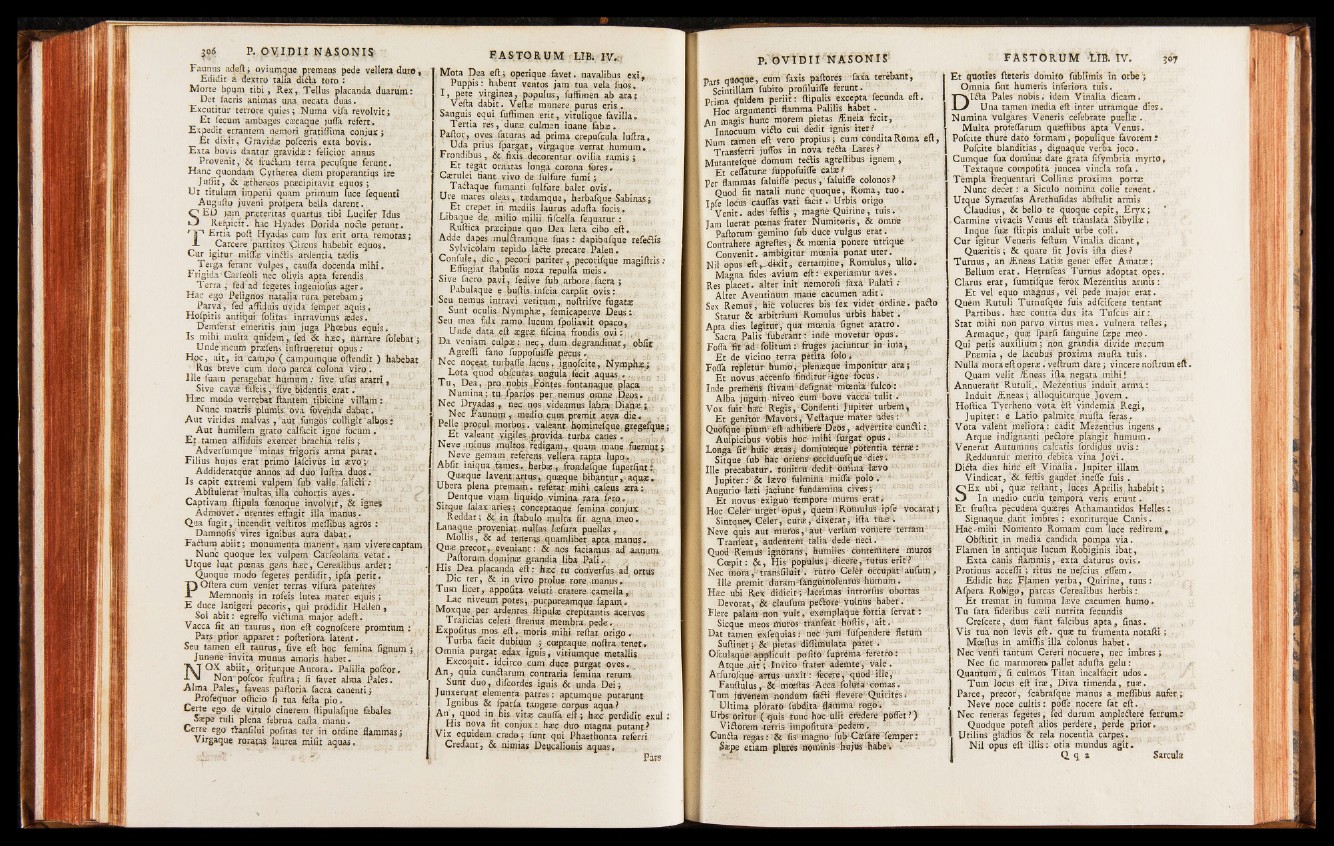 306 P. OVIDII NASONIS
Faunus adest; oviumque premens pede vellera duro,
Edidit a dextro talia dicta toro:
Morte boum tibi, Rex, Tellus placanda duarum:
Det sacris animas una necata duas.
Excutitur terrore quies; Numa visa revolvit;
Et secum ambages caecaque jussa refert.
Expedit errantem nemori gratissima conjux;
Et dixit, Gravidae posceris exta bovis.
Exta bovis dantur gravidae: felicior annus
Provenit, & fructum terra pecusque ferunt.
Hanc quondam Cytherea diem properantius ire
Jussit, & aethereos praecipitavit equos;
Ut titulum imperii quam primum luce sequenti
Augusto juveni prospera bella darent.
SED jam praeteritas quartus tibi Lucifer Idus
Respicit. hac Hyades Dorida nocte petunt.
TErtia post Hyadas cum lux erit orta remotas;
Carcere partitos Circus habebit equos.
Cur igitur missae vinctis ardentia taedis
Terga ferant vulpes, caussa docenda mihi.
Frigida Carseoli nec olivis apta ferendis
Terra, sed ad segetes ingeniosus ager.
Hac ego Pelignos natalia rura petebam;
Parva, sed assiduis uvida semper aquis.
Hospitis antiqui solitas intravimus aedes.
Demserat emeritis jam juga Phoebus equis.
Is mihi multa quidem, sed & haec, narrare solebat;
Unde meum praesens instrueretur opus:
Hoc, ait, in campo (campumque ostendit) habebat
Rus breve cum duro parca colona viro.
Ille suam peragebat humum: sive usus aratri,
Sive cavae falcis, sive bidentis erat.
Haec modo verrebat stantem tibicine villam:
Nunc matris plumis ova fovenda dabat.
Aut virides malvas, aut fungos colligit albos:
Aut humilem grato calfacit igne focum.
Et tamen assiduis exercet brachia telis;
Adversumque minas frigoris arma parat.
Filius hujus erat primo lascivus in aevo;
Addideratque annos ad duo lustra duos.
Is capit extremi vulpem sub valle salicti:
Abstulerat multas illa cohortis aves.
Captivam stipula foenoque involvit, & ignes
Admovet. urentes effugit illa manus.
Qua fugit, incendit vestitos messibus agros:
Damnosis vires ignibus aura dabat.
Factum abiit; monumenta manent. nam vivere captam
Nunc quoque lex vulpem Carseolana vetat.
Utque luat poenas gens haec, Cerealibus ardet:
Quoque modo segetes perdidit, ipsa perit.
POstera cum veniet terras visura patentes
Memnonis in roseis lutea mater equis;
E duce lanigeri pecoris, qui prodidit Hellen,
Sol abit: egresso victima major adest.
Vacca sit an taurus, non est cognoscere promtum:
Pars prior apparet: posteriora latent.
Seu tamen est taurus, sive est hoc femina signum;
Junone invita munus amoris habet.
NOX abiit, oriturque Aurora. Palilia poscor.
Non poscor frustra; si favet alma Pales.
Alma Pales, faveas pastoria sacra canenti;
Prosequor officio si tua festa pio.
Certe ego de vitulo cinerem stipulasque fabales
Saepe tuli plena februa casta manu.
Certe ego transilui positas ter in ordine flammas;
Virgaque roratas laurea misit aquas.
FASTORUM LIB. IV.
Mota Dea est; operique favet. navalibus exi,
Puppis: habent ventos jam tua vela suos.
I, pete virginea, populus, suffimen ab ara;
Vesta dabit. Vestae munere purus eris.
Sanguis equi suffimen erit, vitulique favilla.
Tertia res, durae culmen inane fabae.
Pastor, oves saturas ad prima crepuscula lustra.
Uda prius spargat, virgaque verrat humum.
Frondibus, & fixis decorentur ovilia ramis;
Et tegat ornatas longa corona fores.
Caerulei fiant vivo de sulfure fumi;
Tactaque fumanti sulfure balet ovis.
Ure mares oleas, taedamque, herbasque Sabinas;
Et crepet in mediis laurus adusta focis.
Libaque de milio milii fiscella sequatur:
Rustica praecipue quo Dea laeta cibo est.
Adde dapes mulctramque suas: dapibusque resectis
Sylvicolam tepido lacte precare Palen.
Consule, dic, pecori pariter, pecorisque magistris:
Effugiat stabulis noxa repulsa meis.
Sive sacro pavi, sedive sub arbore sacra;
Pabulaque e bustis inscia carpsit ovis:
Seu nemus intravi vetitum, nostrisve fugatae
Sunt oculis Nymphae, semicaperve Deus:
Seu mea falx ramo lucum spoliavit opaco,
Unde data est aegrae fiscina frondis ovi:
Da veniam culpae: nec, dum degrandinat, obsit
Agresti fano supposuisse pecus.
Nec noceat turbasse lacus. ignoscite, Nymphae;
Lota quod obscuras ungula fecit aquas.
Tu, Dea, pro nobis Fontes fontanaque placa
Numina; tu sparsos per nemus omne Deos.
Nec Dryadas, nec nos videamus labra Dianae;
Nec Faunum, medio cum premit arva die.
Pelle procul morbos. valeant hominesque gregesque;
Et valeant vigiles provida turba canes.
Neve minus multos redigam, quam mane fuerunt;
Neve gemam referens vellera rapta lupo.
Absit iniqua fames. herbae, frondesque supersint:
Quaeque lavent artus, quaeque bibantur, aquae.
Ubera plena premam. referat mihi caseus aera:
Dentque viam liquido vimina rara sero.
Sitque salax aries; conceptaque semina conjux
Reddat; & in stabulo multa sit agna meo.
Lanaque proveniat nullas laesura puellas,
Mollis, & ad teneras quamlibet apta manus.
Quae precor, eveniant: & nos faciamus ad annum
Pastorum dominae grandia liba Pali.
His Dea placanda est: haec tu conversus ad ortus
Dic ter, & in vivo prolue rore manus.
Tum licet, apposita veluti cratere camella,
Lac niveum potes, purpureamque sapam.
Moxque per ardentes stipulae crepitantis acervos
Trajicias celeri strenua membra pede.
Expositus mos est. moris mihi restat origo.
Turba facit dubium; coeptaque nostra tenet.
Omnia purgat edax ignis, vitiumque metallis
Excoquit. idcirco cum duce purgat oves.
An, quia cunctarum contraria semina rerum
Sunt duo, discordes ignis & unda Dei;
Junxerunt elementa patres: aptumque putarunt
Ignibus & sparsa tangere corpus aqua?
An, quod in his vitae caussa est; haec perdidit exul:
His nova fit conjux: haec duo magna putant?
Vix equidem credo; sunt qui Phaethonta referri
Credant, & nimias Deucalionis aquas.
Pars
P. OVIDII NASONIS
Pars quoque, cum saxis pastores saxa terebant,
Scintillam subito prosiluisse ferunt.
Prima quidem periit: stipulis excepta secunda est.
Hoc argumenti flamma Palilis habet.
An magis hunc morem pietas Aeneia fecit,
Innocuum victo cui dedit ignis iter?
Num tamen est vero propius; cum condita Roma est,
Transferri jussos in nova tecta Lares?
Mutantesque domum tectis agrestibus ignem,
Et cessaturae supposuisse casae?
Per flammas saluisse pecus, saluisse colonos?
Quod fit natali nunc quoque, Roma, tuo.
Ipse locus caussas vati facit. Urbis origo
Venit. ades festis, magne Quirine, tuis.
Jam luerat poenas frater Numitoris, & omne
Pastorum gemino sub duce vulgus erat.
Contrahere agrestes, & moenia ponere utrique
Convenit. ambigitur moenia ponat uter.
Nil opus est, dixit, certamine, Romulus, ullo.
Magna fides avium est: experiamur aves.
Res placet. alter init nemorosi saxa Palati:
Alter Aventinum mane cacumen adit.
Sex Remus, hic volucres bis sex videt ordine. pacto
Statur & arbitrium Romulus urbis habet.
Apta dies legitur, qua moenia signet aratro.
Sacra Palis suberant: inde movetur opus.
Fossa fit ad solitum: fruges jaciuntur in ima,
Et de vicino terra petita solo.
Fossa repletur humo, plenaeque imponitur ara;
Et novus accenso finditur igne focus.
Inde premens stivam designat moenia sulco:
Alba jugum niveo cum bove vacca tulit.
Vox fuit haec Regis, Condenti Jupiter urbem,
Et genitor Mavors, Vestaque mater ades:
Quosque pium est adhibere Deos, advertite cuncti:
Auspicibus vobis hoc mihi surgat opus.
Longa sit huic aetas; dominaeque potentia terrae:
Sitque sub hac oriens occiduusque dies.
Ille precabatur. tonitru dedit omina laevo
Jupiter: & laevo fulmina missa polo.
Augurio laeti jaciunt fundamina cives;
Et novus exiguo tempore murus erat.
Hoc Celer urget opus, quem Romulus ipse vocarat;
Sintque, Celer, curae, dixerat, ista tuae.
Neve quis aut muros, aut versam vomere terram
Transeat, audentem talia dede neci.
Quod Remus ignorans, humiles contemnere muros
Coepit: &, His populus, dicere, tutus erit?
Nec mora, transsiluit. rutro Celer occupat ausum,
Ille premit duram sanguinolentus humum.
Haec ubi Rex didicit; lacrimas introrsus obortas
Devorat, & clausum pectore vulnus habet.
Flere palam non vult, exemplaque fortia servat:
Sicque meos muros transeat hostis, ait.
Dat tamen exsequias: nec jam suspendere fletum
Sustinet; & pietas dissimulata patet.
Osculaque applicuit posito suprema feretro:
Atque ait; Invito frater ademte, vale.
Arsurosque artus unxit: fecere, quod ille,
Faustulus, & moestas Acca soluta comas.
Tum juvenem nondum facti flevere Quirites.
Ultima plorato subdita flamma rogo.
Urbs oritur (quis tunc hoc ulli credere posset?)
Victorem terris impositura pedem.
Cuncta regas: & sis magno sub Caesare semper:
Saepe etiam plures nominis hujus habe.
FASTORUM LIB. IV. 307
Et quoties steteris domito sublimis in orbe;
Omnia sint humeris inferiora tuis.
DIcta Pales nobis. idem Vinalia dicam.
Una tamen media est inter utramque dies.
Numina vulgares Veneris celebrate puellae.
Multa professarum quaestibus apta Venus.
Poscite thure dato formam, populique favorem:
Poscite blanditias, dignaque verba joco.
Cumque sua dominae date grata sisymbria myrto,
Textaque composita juncea vincla rosa.
Templa frequentari Collinae proxima portae
Nunc decet: a Siculo nomina colle tenent.
Utque Syracusas Arethusidas abstulit armis
Claudius, & bello te quoque cepit, Eryx;
Carmine vivacis Venus est translata Sibyllae:
Inque suae stirpis maluit urbe coli.
Cur igitur Veneris festum Vinalia dicant,
Quaeritis; & quare sit Jovis ista dies?
Turnus, an Aeneas Latiae gener esset Amatae;
Bellum erat. Hetruscas Turnus adoptat opes.
Clarus erat, sumtisque ferox Mezentius armis:
Et vel equo magnus, vel pede major erat.
Quem Rutuli Turnusque suis adsciscere tentant
Partibus. haec contra dux ita Tuscus ait:
Stat mihi non parvo virtus mea. vulnera testes;
Armaque, quae sparsi sanguine saepe meo.
Qui petis auxilium; non grandia divide mecum
Praemia, de lacubus proxima musta tuis.
Nulla mora est operae. vestrum dare; vincere nostrum est.
Quam velit Aeneas ista negata mihi!
Annuerant Rutuli. Mezentius induit arma:
Induit Aeneas; alloquiturque Jovem.
Hostica Tyrrheno vota est vindemia Regi,
Jupiter: e Latio palmite musta feras.
Vota valent meliora: cadit Mezentius ingens,
Atque indignanti pectore plangit humum.
Venerat Autumnus calcatis sordidus uvis:
Redduntur merito debita vina Jovi.
Dicta dies hinc est Vinalia. Jupiter illam
Vindicat, & festis gaudet inesse suis.
SEx ubi, quae restant, luces Aprilis habebit;
In medio cursu tempora veris erunt.
Et frustra pecudem quaeres Athamantidos Helles:
Signaque dant imbres: exoriturque Canis.
Hac mihi Nomento Romam cum luce redirem,
Obstitit in media candida pompa via.
Flamen in antiquae lucum Robiginis ibat,
Exta canis flammis, exta daturus ovis.
Protinus accessi; ritus ne nescius essem.
Edidit haec Flamen verba, Quirine, tuus:
Aspera Robigo, parcas Cerealibus herbis:
Et tremat in summa laeve cacumen humo.
Tu sata sideribus caeli nutrita secundis
Crescere, dum fiant falcibus apta, sinas.
Vis tua non levis est. quae tu frumenta notasti;
Moestus in amissis illa colonus habet.
Nec venti tantum Cereri nocuere, nec imbres;
Nec sic marmoreo pallet adusta gelu:
Quantum, si culmos Titan incalfacit udos.
Tum locus est irae, Diva timenda, tuae.
Parce, precor, scabrasque manus a messibus aufer;
Neve noce cultis: posse nocere sat est.
Nec teneras segetes, sed durum amplectere ferrum:
Quodque potest alios perdere, perde prior.
Utilius gladios & tela nocentia carpes.
Nil opus est illis: otia mundus agit.
Q q 2 Sarcula